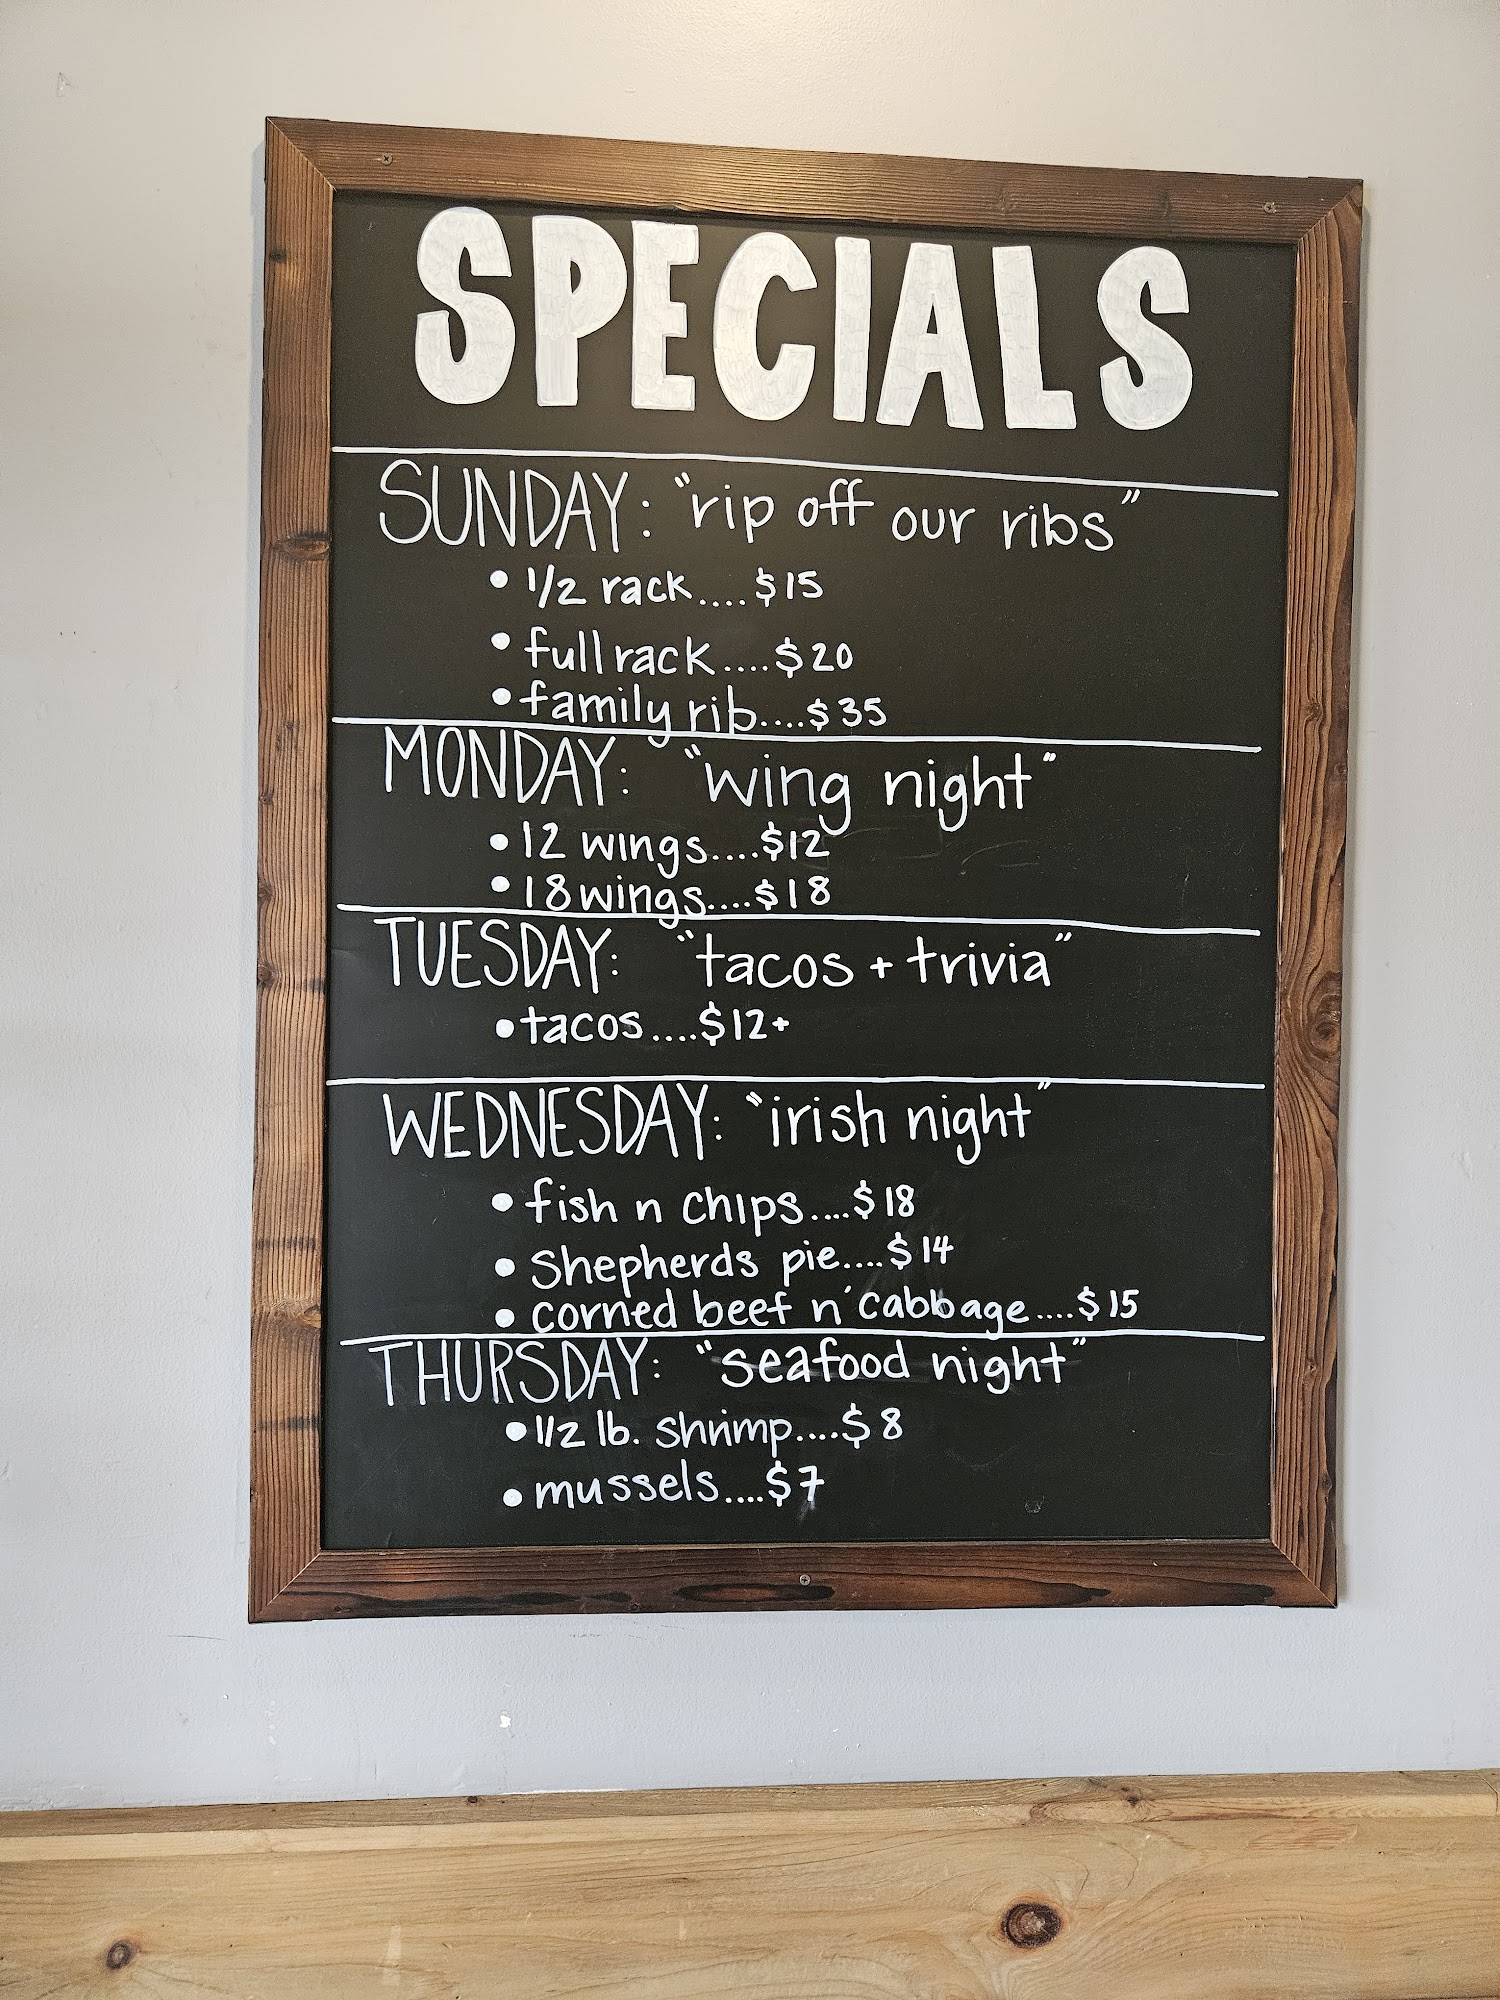 SPECIALS
SUNDAY: "rip off our ribs"
• 1/2 rack....$15
• full rack....$20
• family rib....$35
MONDAY: "wing night"
• 12 wings....$12
• 18 wings....$18
TUESDAY: "tacos + trivia"
• tacos....$12+
WEDNESDAY: "irish night"
• fish n chips....$18
• Shepherds pie....$14
• corned beef n' cabbage....$15
THURSDAY: "seafood night"
• 1/2 lb. shrimp....$8
• mussels....$7